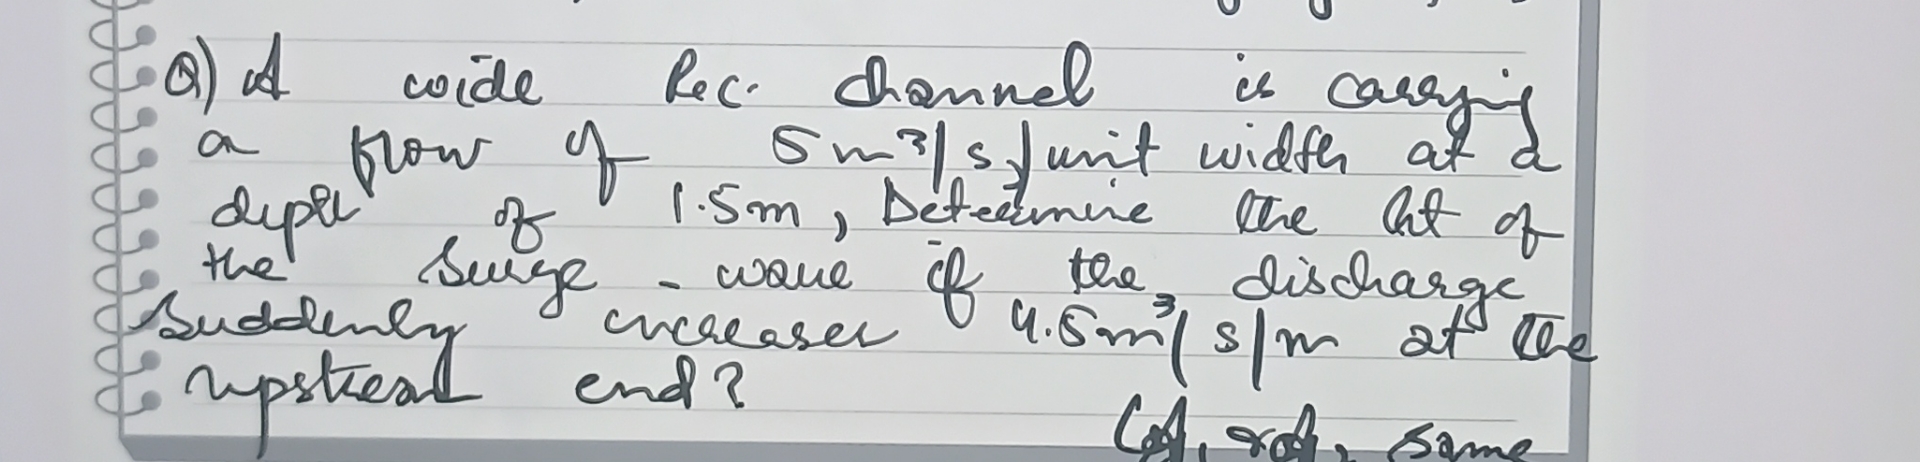 Q) A wide Rec. channel is carrying
a flow of 5m³/s/unit width at a
depth of 1.5m, Determine the ht of
the surge-wave if the discharge
suddenly increases 4.5m³/s/m at the
upstream end?
same